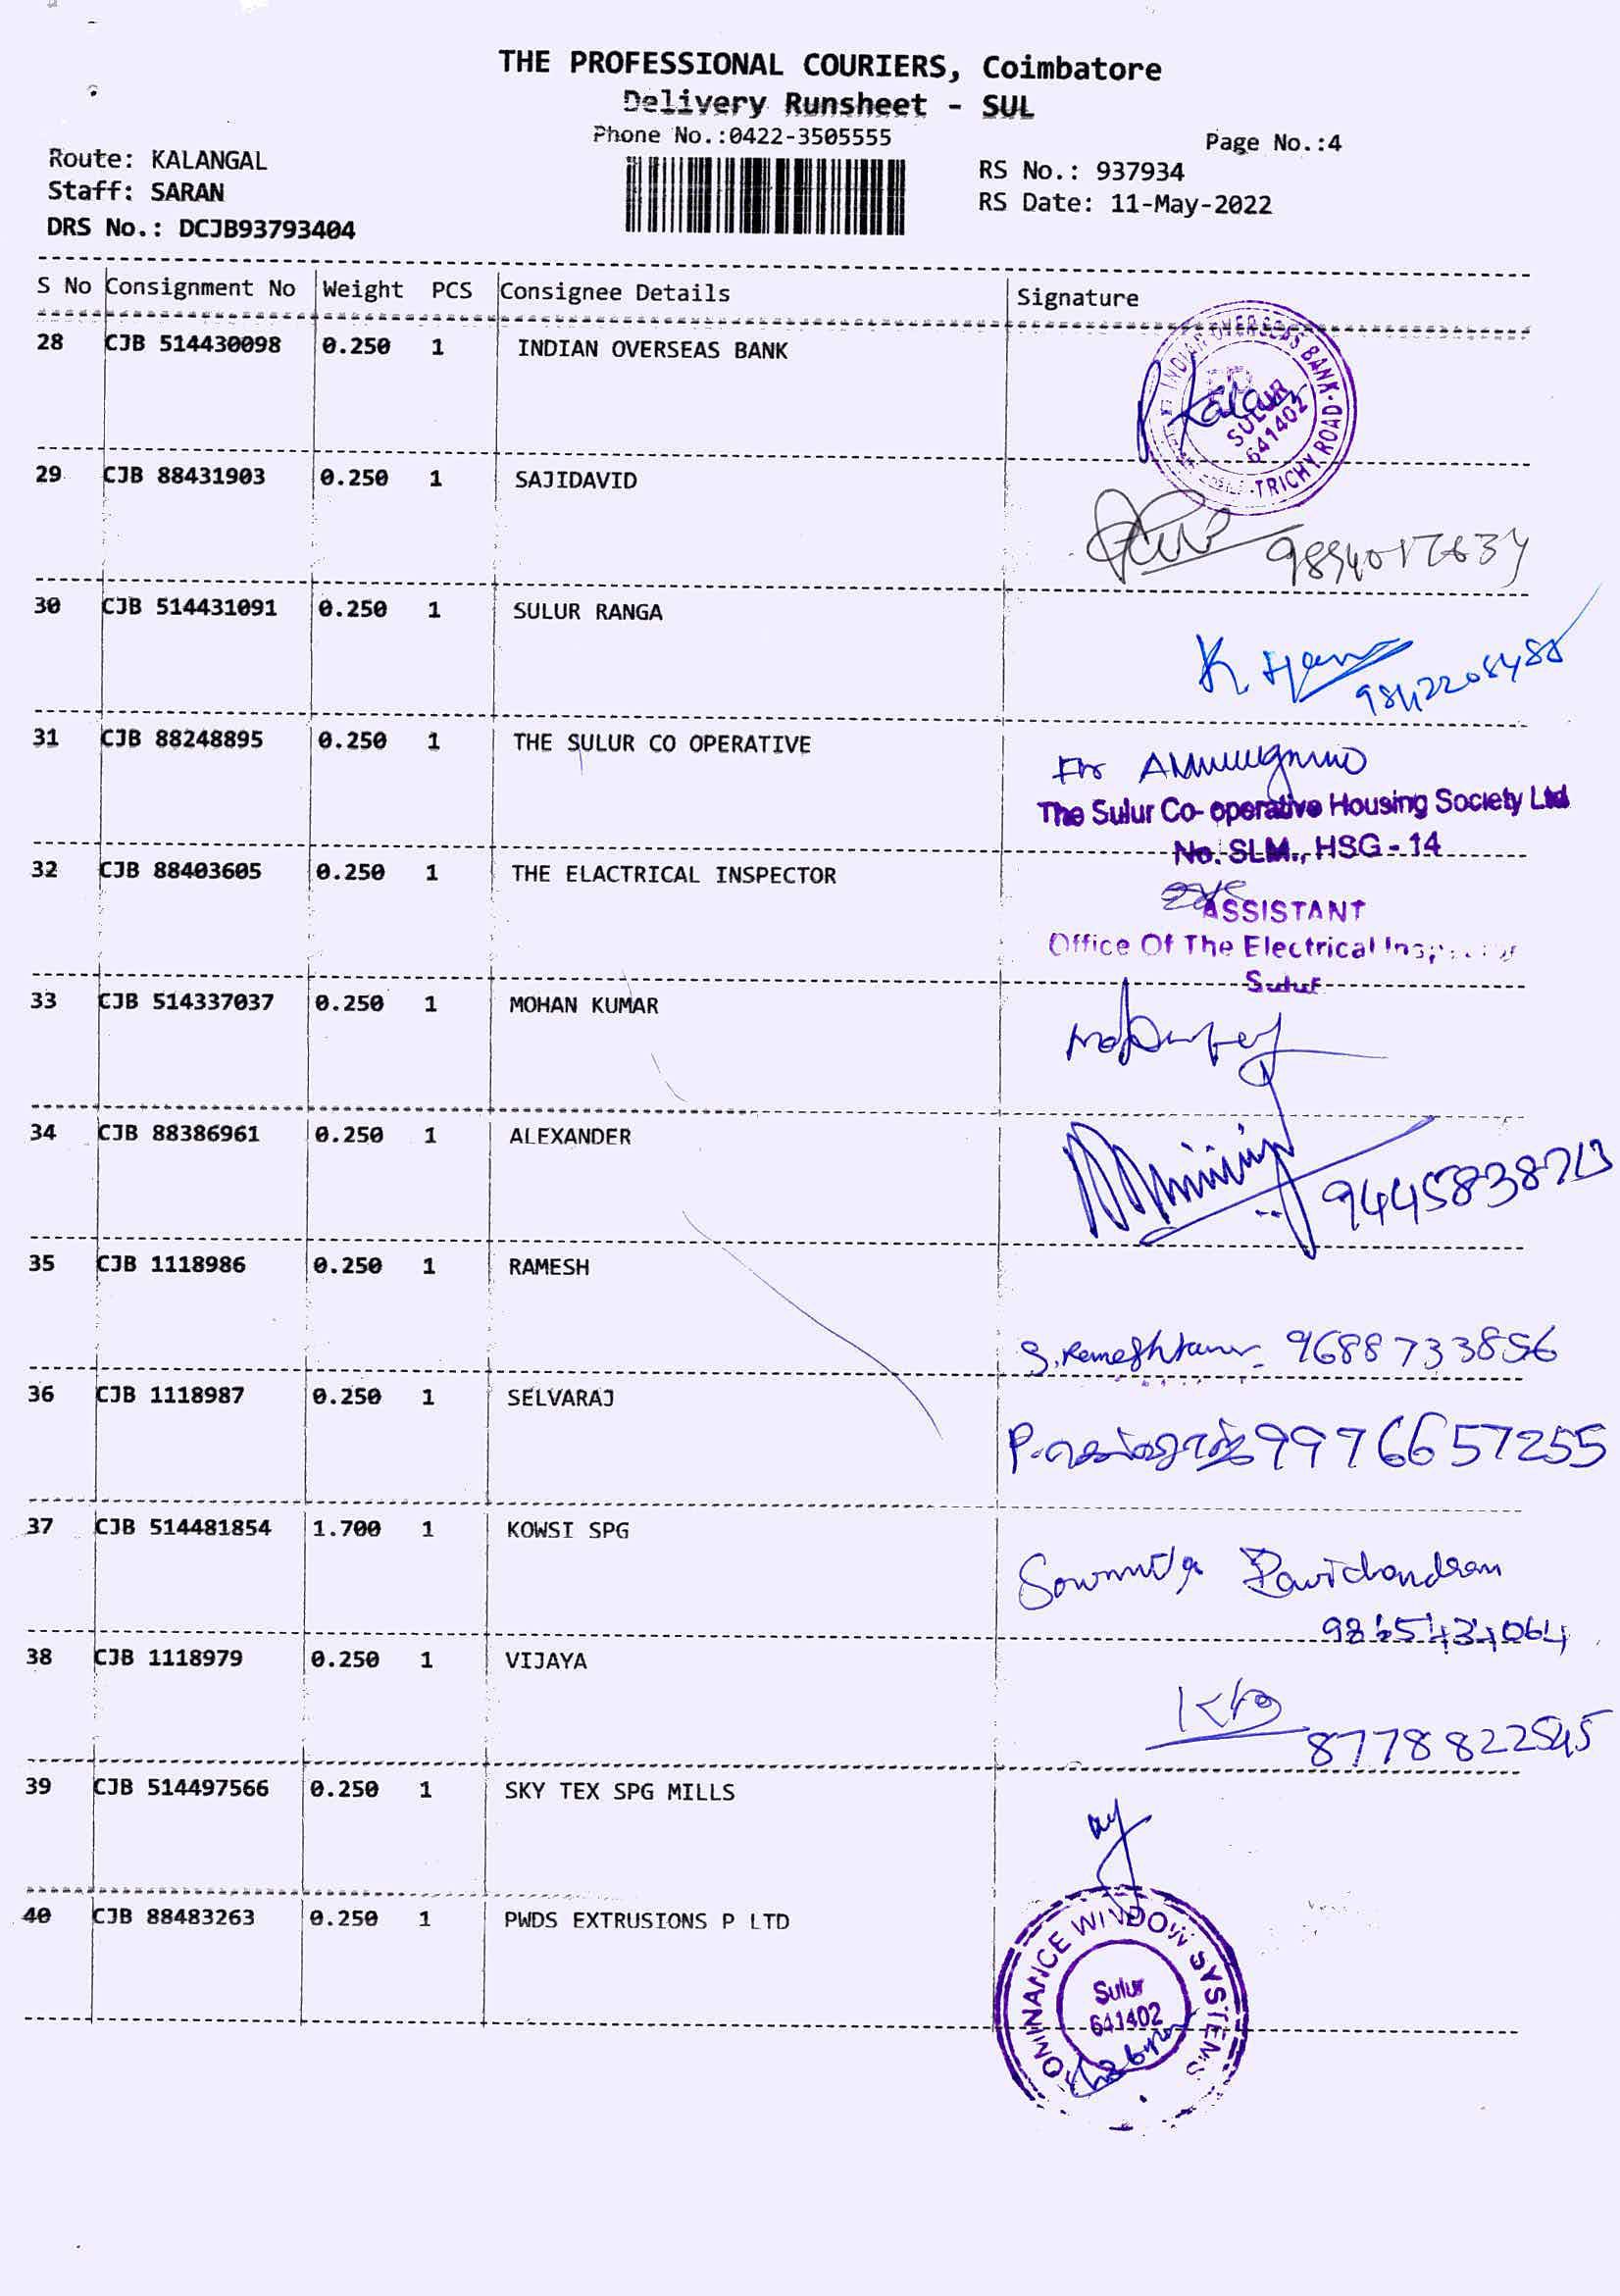 THE PROFESSIONAL COURIERS, Coimbatore
Delivery Runsheet - SUL
Phone No.:0422-3505555
Page No.:4
Route: KALANGAL
RS No.: 937934
Staff: SARAN
RS Date: 11-May-2022
DRS No.: DCJB93793404
S No Consignment No Weight PCS Consignee Details Signature
28 CJB 514430098 0.250 1 INDIAN OVERSEAS BANK
INDIAN OVERSEAS BANK TRICHY ROAD
SULUR
641402
29 CJB 88431903 0.250 1 SAJIDAVID
30 CJB 514431091 0.250 1 SULUR RANGA
31 CJB 88248895 0.250 1 THE SULUR CO OPERATIVE
The Sulur Co-operative Housing Society Ltd
No. SLM., HSG-14
32 CJB 88403605 0.250 1 THE ELACTRICAL INSPECTOR
ASSISTANT
Office Of The Electrical
Sulur
33 CJB 514337037 0.250 1 MOHAN KUMAR
34 CJB 88386961 0.250 1 ALEXANDER
35 CJB 1118986 0.250 1 RAMESH
9688733856
36 CJB 1118987 0.250 1 SELVARAJ
9976657255
37 CJB 514481854 1.700 1 KOWSI SPG
Ravichandran
38 CJB 1118979 0.250 1 VIJAYA
8778822545
39 CJB 514497566 0.250 1 SKY TEX SPG MILLS
40 CJB 88483263 0.250 1 PWDS EXTRUSIONS P LTD
WINDOW SYSTEMS
Sulur
641402